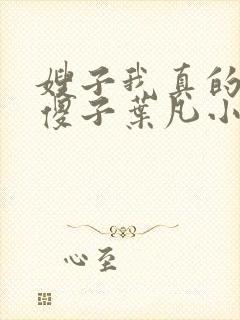 嫂子我真的
傻子葉凡小
心至